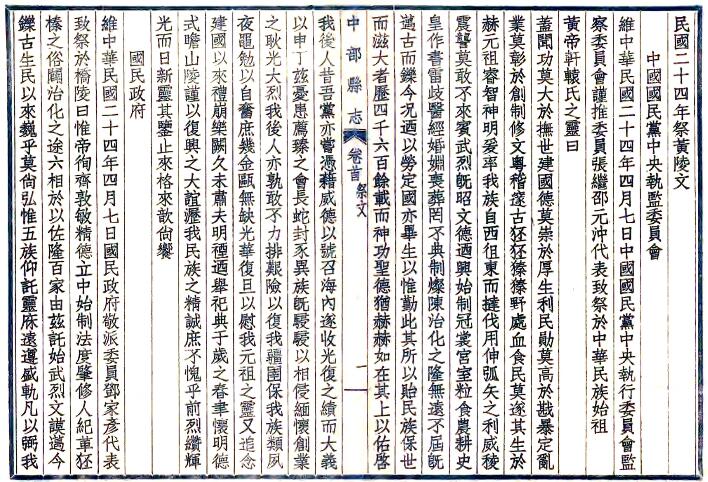 民國二十四年祭黃陵文
中國國民黨中央執監委員會
維中華民國二十四年四月七日中國國民黨中央執行委員會監
察委員會謹推委員張繼邵元沖代表致祭於中華民族始祖
黃帝軒轅氏之靈曰
蓋聞功莫大於撫世建國德莫崇於厚生利民勛莫高於戡暴定亂
業莫彰於創制修文粵稽邃古狉狉獉獉野處血食民莫遂其生於
赫元祖睿智神明爰率我族自西徂東而撻伐用伸弧矢之利威稜
震讋莫敢不來賓武烈旣昭文德迺興始制冠裳宮室粒食農耕史
皇作書雷歧醫經婚姻喪葬罔不典制燦陳治化之隆無遠不屆旣
邁古而鑠今況迺以勞定國亦畢生以惟勤此其所以貽民族保世
而滋大者歷四千六百餘載而神功聖德猶赫赫如在其上以佑啓
中部縣志
卷首 祭文
一
我後人昔吾黨亦嘗憑藉威德以號召海內遂收光復之績而大義
以申丁茲憂患薦臻之會長蛇封豕異族旣駸駸以相侵緬懷創業
之耿光大烈我後人亦孰敢不力排艱險以復我疆圉保我族類夙
夜黽勉以自奮庶幾金甌無缺光華復旦以慰我元祖之靈又追念
建國以來禮崩樂闕久未肅夫明禋迺舉祀典于歲之春華懷明德
式瞻山陵謹以復興之大誼瀝我民族之精誠庶不愧乎前烈纘輝
光而日新靈其鑒止來格來歆尙饗
國民政府
維中華民國二十四年四月七日國民政府敬派委員鄧家彥代表
致祭於橋陵曰惟帝徇齊敦敏精德立中始制法度肇修人紀革狉
榛之俗闢治化之途六相於以佐隆百家由茲託始武烈文謨邁今
鑠古生民以來巍乎莫尙弘惟五族仰託靈庥遠遵盛軌凡以弼我